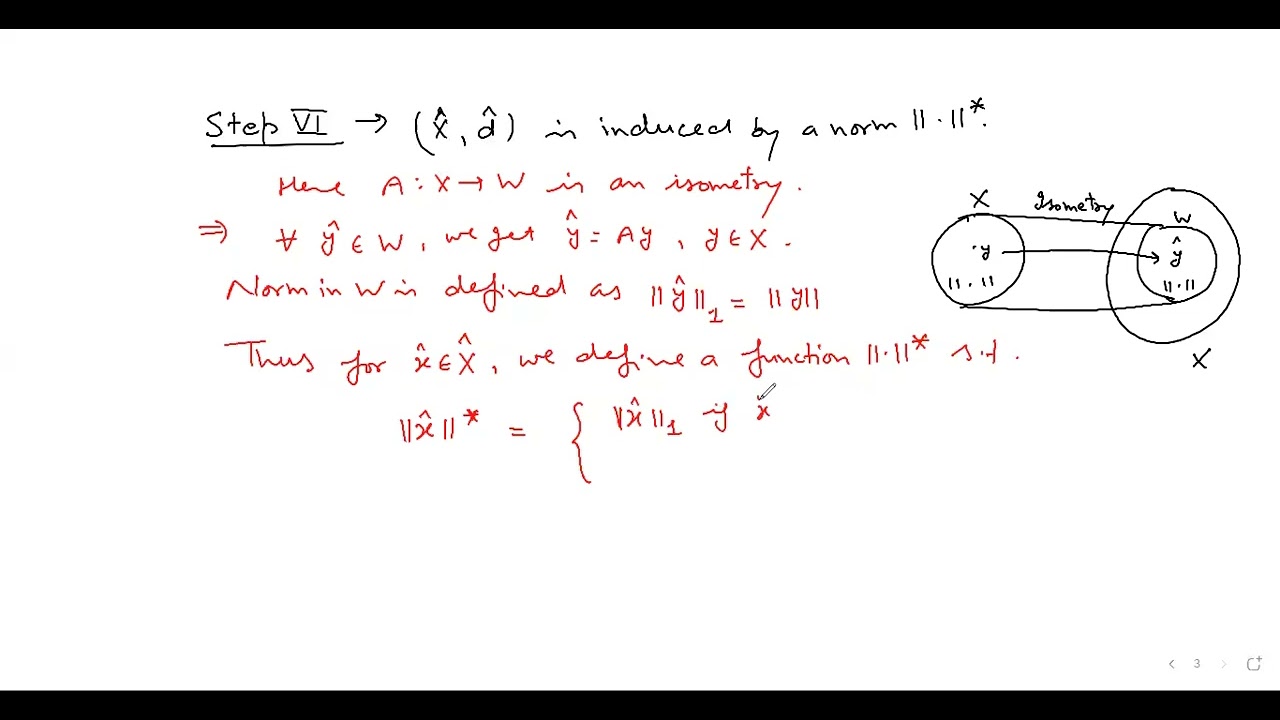 Step VI → (X̂, d̂) is induced by a norm ||·||*.
Here A : X → W is an isometry.
⇒ ∀ ŷ ∈ W, we get ŷ = Ay, y ∈ X.
Norm in W is defined as ||ŷ||₁ = ||y||
Thus for x̂ ∈ X̂, we define a function ||·||* s.t.
||x̂||* = { ||x̂||₁ if x
X Isometry W
·y ŷ
||·|| ||·||
X
3